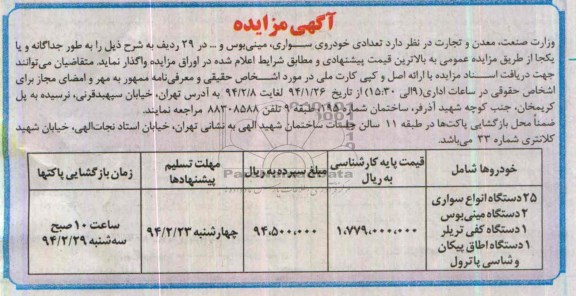 آگهی مزایده
وزارت صنعت، معدن و تجارت در نظر دارد تعدادی خودروی سواری، مینی‌بوس و ... در ۲۹ ردیف به شرح ذیل را به طور جداگانه و یا
یکجا از طریق مزایده عمومی به بالاترین قیمت پیشنهادی و مطابق شرایط اعلام شده در اوراق مزایده واگذار نماید. متقاضیان می‌توانند
جهت دریافت اسناد مزایده با ارائه اصل و کپی کارت ملی در مورد اشخاص حقیقی و معرفی‌نامه ممهور به مهر و امضای مجاز برای
اشخاص حقوقی در ساعات اداری (۹الی ۱۵:۳۰) از تاریخ ۹۴/۱/۲۶ لغایت ۹۴/۲/۸ به آدرس تهران، خیابان سپهبدقرنی، نرسیده به پل
کریمخان، جنب کوچه شهید آذرفر، ساختمان شماره ۲۹۵ طبقه ۹ تلفن ۸۸۳۰۸۵۸۸ مراجعه نمایند.
ضمناً محل بازگشایی پاکت‌ها در طبقه ۱۱ سالن جلسات ساختمان شهید الهی به نشانی تهران، خیابان استاد نجات‌الهی، خیابان شهید
کلانتری شماره ۳۳ می‌باشد.
خودروها شامل
قیمت پایه کارشناسی به ریال
مبلغ سپرده به ریال
مهلت تسلیم پیشنهادها
زمان بازگشایی پاکتها
۲۵ دستگاه انواع سواری
۲ دستگاه مینی‌بوس
۱ دستگاه کفی تریلر
۱ دستگاه اطاق پیکان
و شاسی پاترول
۱،۷۷۹،۰۰۰،۰۰۰
۹۴،۵۰۰،۰۰۰
چهارشنبه ۹۴/۲/۲۳
ساعت ۱۰ صبح
سه‌شنبه ۹۴/۲/۲۹